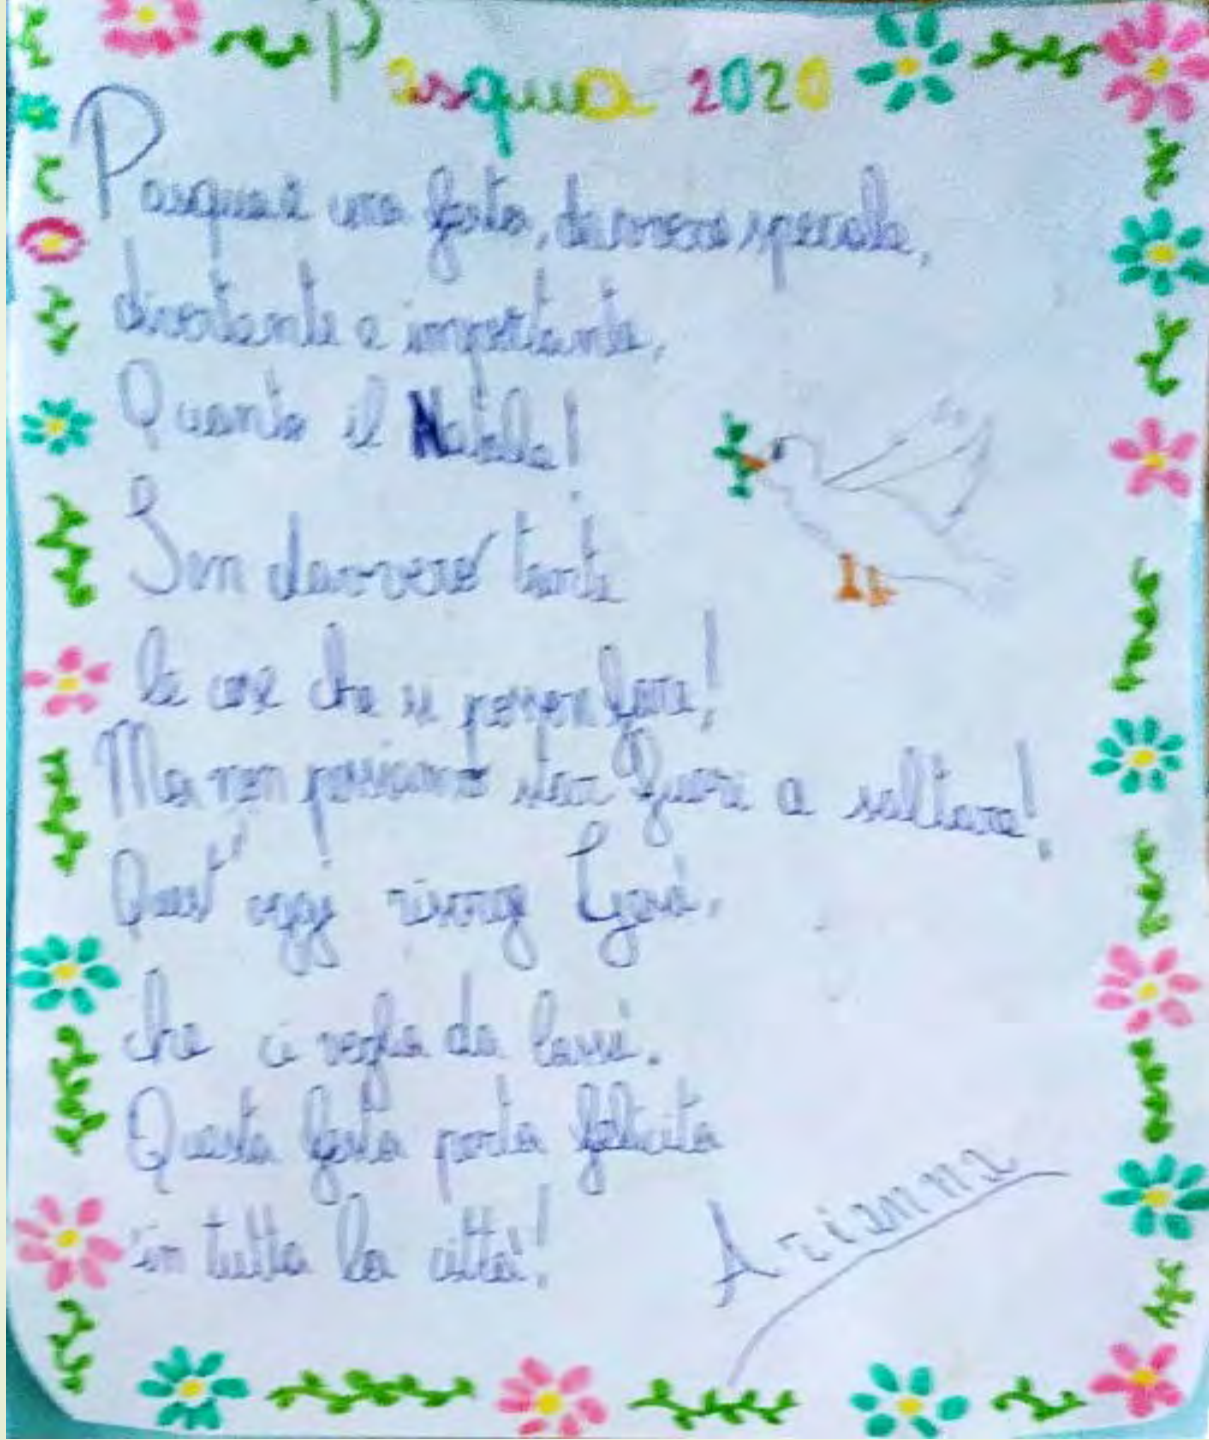 Pasqua 2020
Pasqua è una festa, davvero speciale,
divertente e importante,
Quanto il Natale!
Son davvero tante
le cose che si posson fare!
Ma non possiamo star fuori a saltare!
Quest'oggi risorge Gesù,
che ci veglia da lassù.
Questa festa porta felicità
in tutta la città!
Arianna